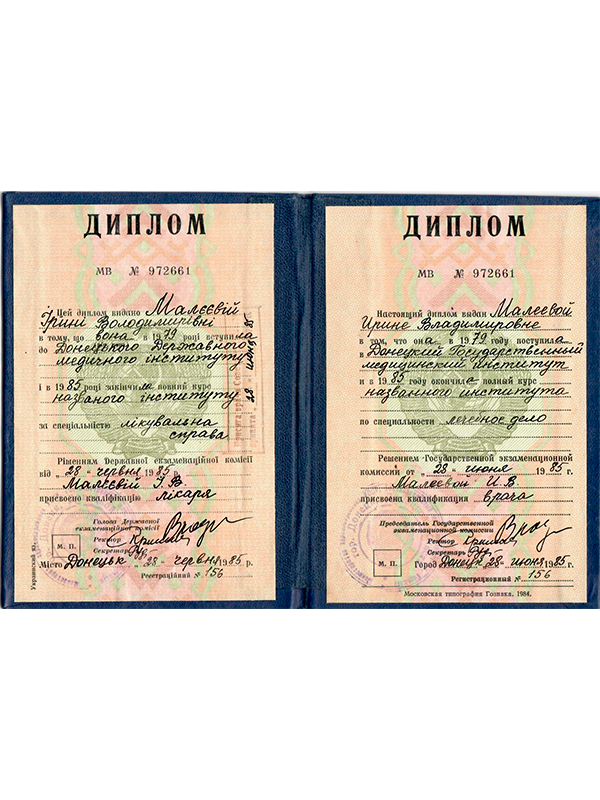 ДИПЛОМ
МВ № 972661
Цей диплом видано Малєєвій
Ірині Володимирівні
в тому, що вона в 1979 році вступила
до Донецького Державного
медичного інституту
і в 1985 році закінчила повний курс
названого інституту
за спеціальністю лікувальна
справа
Рішенням Державної екзаменаційної комісії
від „28“ червня 1985 р.
Малєєвій І.В.
присвоєно кваліфікацію лікаря
Голова Державної
екзаменаційної комісії
Ректор
Секретар
М. П.
Місто Донецьк „28“ червня 1985 р.
Реєстраційний № 156
ДИПЛОМ
МВ № 972661
Настоящий диплом выдан Малеевой
Ирине Владимировне
в том, что она в 1979 году поступила
в Донецкий Государственный
медицинский институт
и в 1985 году окончила полный курс
названного института
по специальности лечебное дело
Решением Государственной экзаменационной
комиссии от „28“ июня 1985 г.
Малеевой И.В.
присвоена квалификация врача
Председатель Государственной
экзаменационной комиссии
Ректор
Секретарь
М. П.
Город Донецк 28 июня 1985 г.
Регистрационный № 156
Московская типография Гознака, 1984.